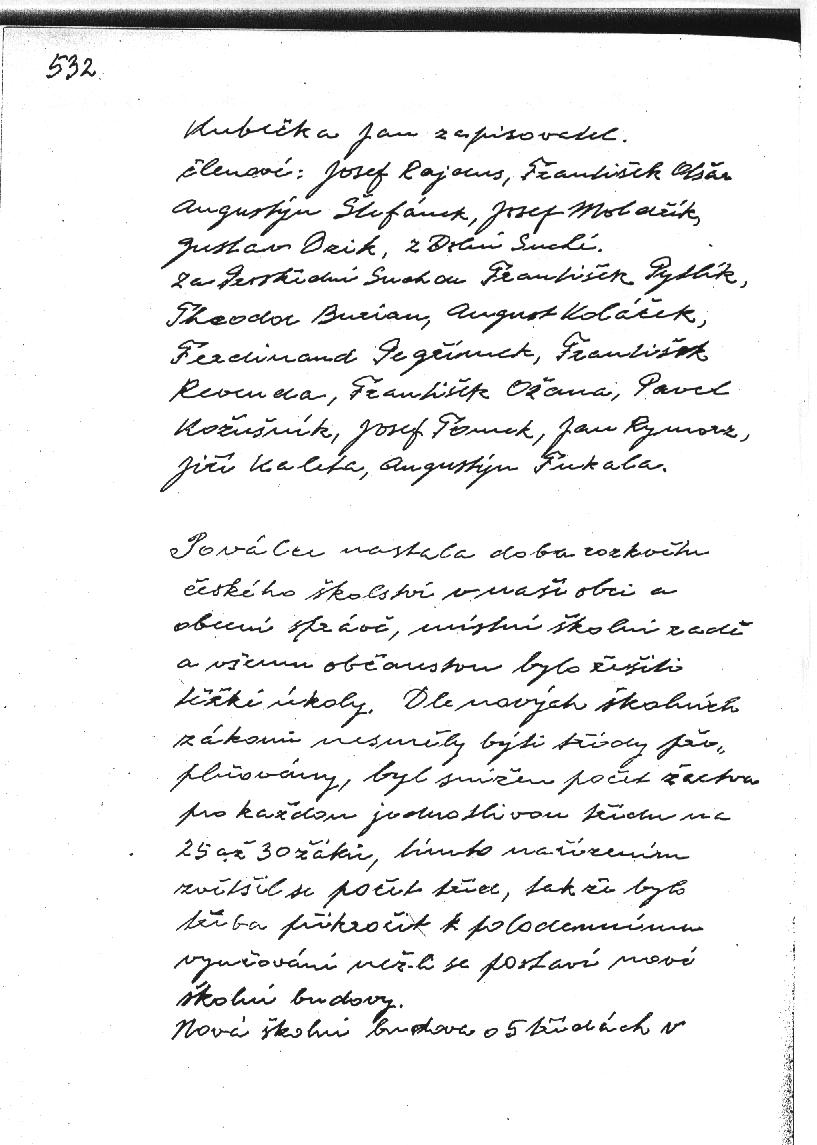 532
Kubička Jan zapisovatel.
členové: Josef Rajdus, František Olšár
Augustýn Štefánek, Josef Moldřík,
Gustav Dzik, z Dolní Suché.
Za Prostřední Suchou František Pytlík,
Theodor Burian, August Koláček,
Ferdinand Pegřímek, František
Revenda, František Ožana, Pavel
Kožušník, Josef Tomek, Jan Rymorz,
Jiří Kaleta, Augustýn Fukala.
Po válce nastala doba rozkvětu
českého školství v naší obci a
obecní správě, místní školní radě
a všemu občanstvu bylo řešiti
těžké úkoly. Dle nových školních
zákonů nesměly býti třídy pře„
plňovány, byl snížen počet žactva
pro každou jednotlivou třídu na
25 až 30 žáků, tímto nařízením
zvětšil se počet tříd, tak že bylo
třeba přikročit k polodennímu
vyučování než-li se postaví nové
školní budovy.
Nová školní budova o 5 třídách v